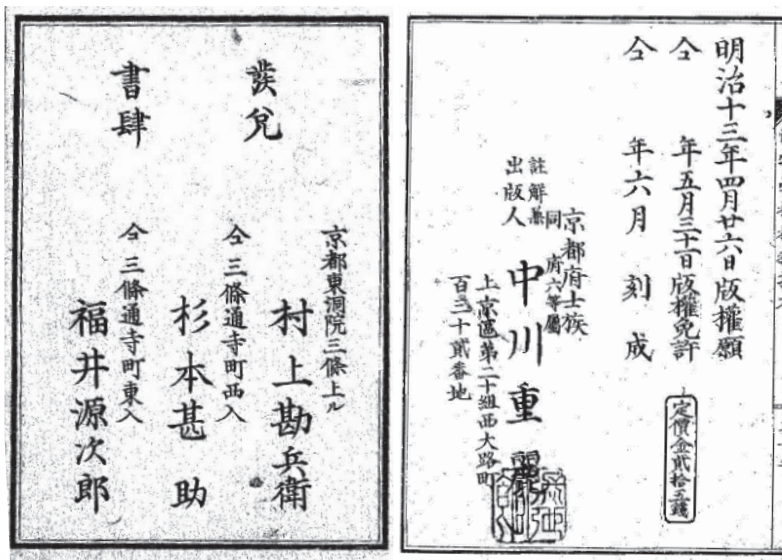 明治十三年四月廿六日版權願
仝 年五月三十一日版權免許
仝 年六月 刻成
定價金貳拾五錢
京都府士族
同 府六等屬
註解兼
出版人
中川重麗
上京區第二十組西大路町
百三十貳番地
發兌
書肆
京都東洞院三條上ル
村上勘兵衛
仝 三條通寺町西入
杉本甚助
仝 三條通寺町東入
福井源次郎